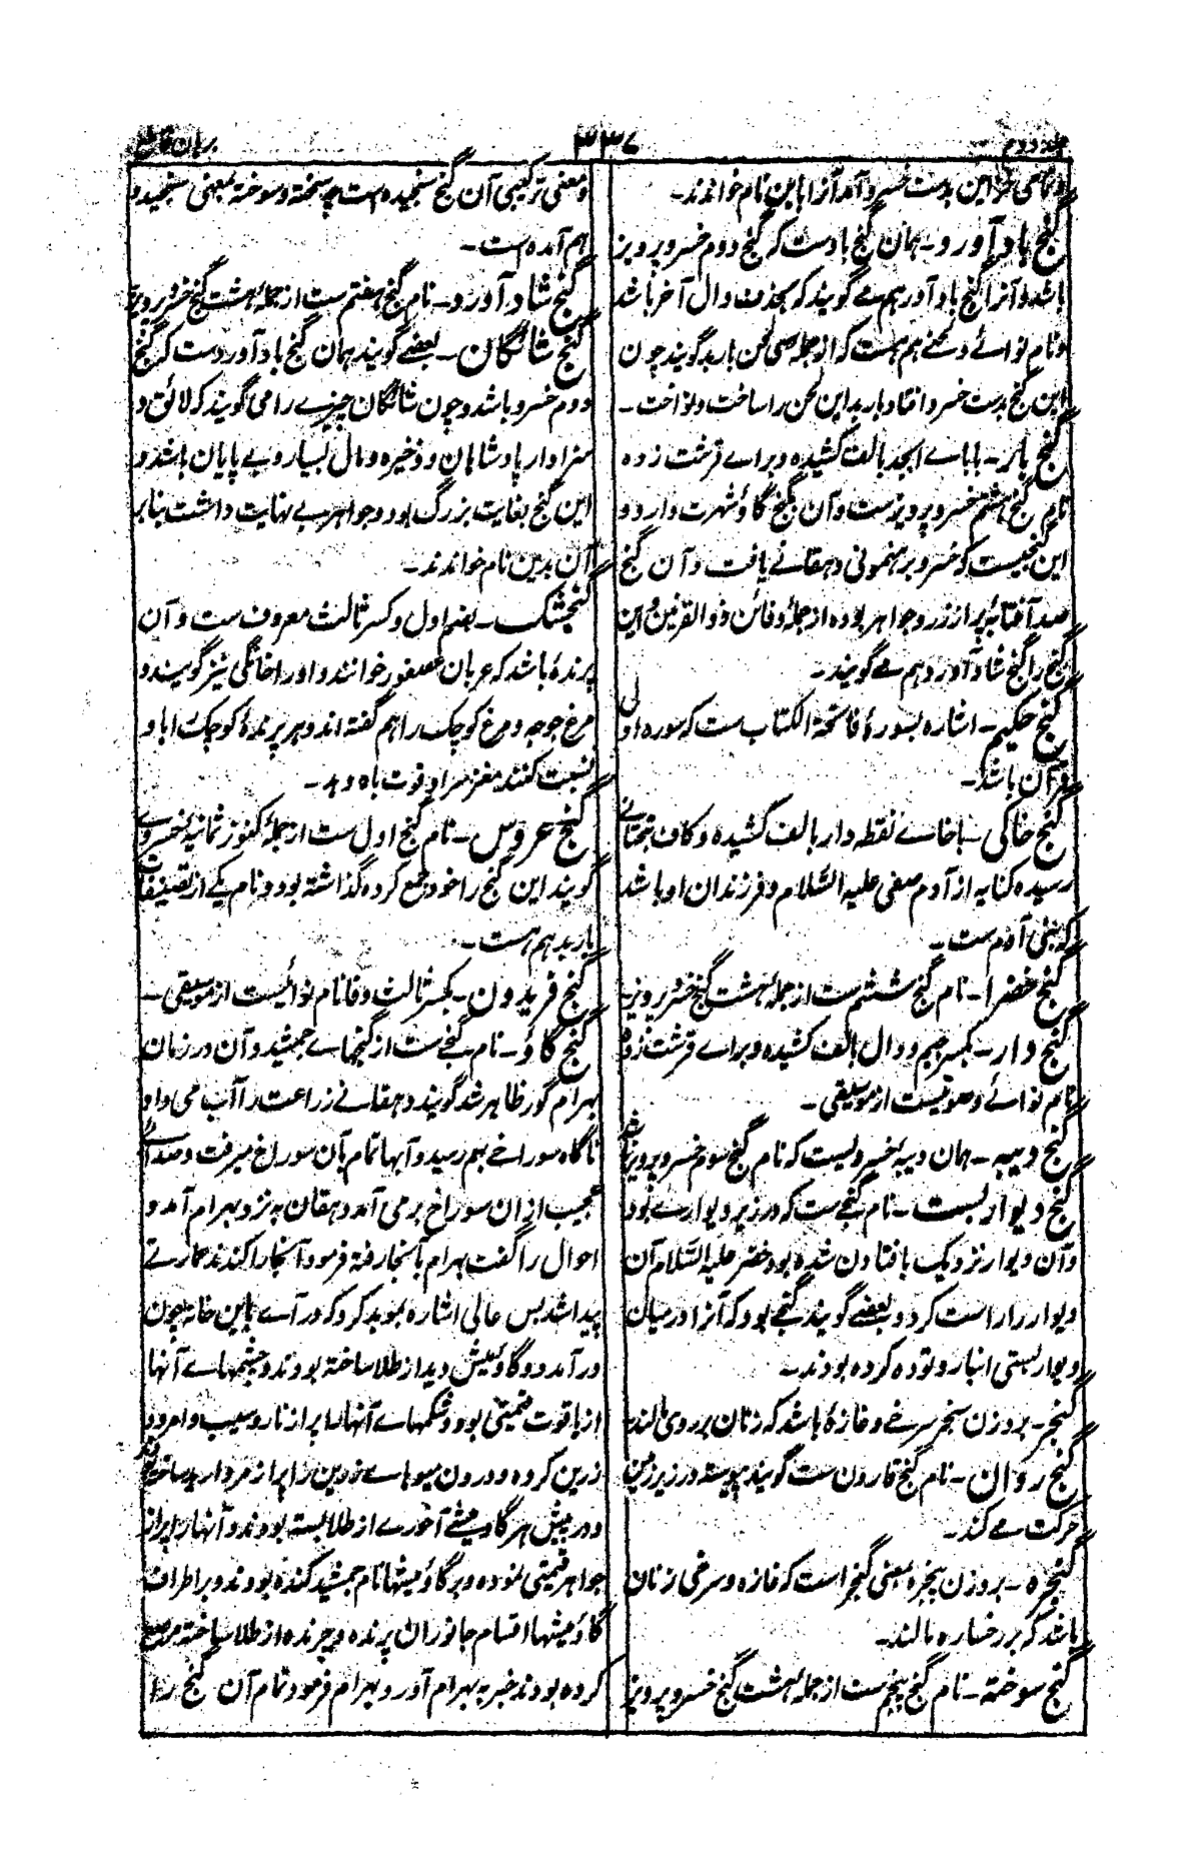 جلد دوم
۳۳۷
برہان قاطع
و تمامی خزاین بدست خسرو آمد آنرا باین نام خواندند۔
گنج باد آورد۔ ہمان گنج بادست کہ گنج دوم خسرو پرویز
باشد و آنرا گنج باد آور ہم مے گویند کہ بحذف دال آخر باشد
و نام نوائے و لحنے ہم ہست کہ از جملۂ سی لحن باربد گویند چون
این گنج بدست خسرو افتاد باربد این لحن را ساخت و نواخت۔
گنج بار۔ با باے ابجد بالف کشیدہ و براے قرشت زدہ
نام گنج ہشتم خسرو پرویزست و آن بگنج گاؤ شہرت دارد و
این گنجیست کہ خسرو برہنمونی دہقانے یافت و آن گنج
صد آفتابۂ پر از زر و جواہر بودہ از جملۂ دفائن ذوالقرنین و این
گنج را گنج شاد آورد ہم مے گویند۔
گنج حکیم۔ اشارہ بسورۂ فاتحۃ الکتاب ست کہ سورہ اولی
قرآن باشد۔
گنج خاکی۔ با خاے نقطہ دار بالف کشیدہ و کاف بتحتانی
رسیدہ کنایہ از آدم صفی علیہ السّلام و فرزندان او باشد
کہ بنی آدم ست۔
گنج خضرا۔ نام گنج ششم ست از جملۂ ہشت گنج خسرو پرویز۔
گنج دار۔ بکسر جیم و دال بالف کشیدہ و براے قرشت زدہ
نام نوائے و صوتیست از موسیقی۔
گنج دیبہ۔ ہمان دیبۂ خسرویست کہ نام گنج سوم خسرو پرویز باشد
گنج دیوار بست۔ نام گنجے ست کہ در زیر دیوارے بود
و آن دیوار نزدیک بافتادن شدہ بود خضر علیہ السّلام آن
دیوار را راست کرد و بعضے گویند گنجے بود کہ آنرا در میان
دیوار بستی انبار و تودہ کردہ بودند۔
گنجر۔ بروزن سنجر سرخے و غازۂ باشد کہ زنان بر روی مالند
گنج روان۔ نام گنج قارون ست گویند پیوستہ در زیر زمین
حرکت مے کند۔
گنجرہ۔ بروزن پنجرہ بمعنی گنجر است کہ غازہ و سرخی زنان
باشد کہ بر رخسارہ مالند۔
گنج سوختہ۔ نام گنج پنجم ست از جملۂ ہشت گنج خسرو پرویز
و معنی ترکیبی آن گنج سنجیدہ است چہ سختہ و سوختہ بمعنی سنجیدہ
ہم آمدہ است۔
گنج شاد آورد۔ نام گنج ہفتم ست از جملۂ ہشت گنج خسرو پرویز
گنج شائگان۔ بعضے گویند ہمان گنج باد آوردست کہ گنج
دوم خسرو باشد و چون شائگان چیزے را می گویند کہ لائق و
سزاوار پادشاہان و ذخیرہ و مال بسیار و بے پایان باشد و
این گنج بغایت بزرگ بود و جواہر بے نہایت داشت بنابر
آن بدین نام خواندند۔
گنجشک۔ بضم اول و کسر ثالث معروف ست و آن
پرندۂ باشد کہ عربان عصفور خوانند و اورا خانگی نیز گویند و
مرغ جوجہ و مرغ کوچک را ہم گفتہ اند و ہر پرندۂ کوچک را باو
نسبت کنند مغز سر او قوت باہ دہد۔
گنج عروس۔ نام گنج اول ست از جملۂ کنوز ثمانیۂ خسروے
گویند این گنج را خود جمع کردہ گذاشتہ بود و نام یکے از تصنیفات
باربد ہم ہست۔
گنج فریدون۔ بکسر ثالث و فا نام نوائیست از موسیقی۔
گنج گاؤ۔ نام گنجے ست از گنجہاے جمشید و آن در زمان
بہرام گور ظاہر شد گویند دہقانے زراعت را آب می داد
ناگاہ سوراخے بہم رسید و آبہا تمام بآن سوراخ میرفت و صداے
عجیب ازان سوراخ بر می آمد دہقان بہ نزد بہرام آمد و
احوال را گفت بہرام بآنجا رفتہ فرمود آنجا را کندند عمارتے
پیدا شد بس عالی اشارہ بموبد کرد کہ در آے باین خانہ چون
در آمد دو گاؤمیش دید از طلا ساختہ بودند و چشمہاے آنہا
از یاقوت قیمتی بود و شکمہاے آنہا را پر از نار و سیب و امرود
زرین کردہ و درون میوہاے زرین را پر از مروارید ساختہ بودند
و در پیش ہر گاؤمیشے آخورے از طلا بستہ بودند و آنہا را پر از
جواہر قیمتی نمودہ و بر گاؤمیشہا نام جمشید کندہ بودند و بر اطراف
گاؤمیشہا اقسام جانوران پرندہ و چرندہ از طلا ساختہ مرصع
کردہ بودند خبر بہ بہرام آورد بہرام فرمود تمام آن گنج را